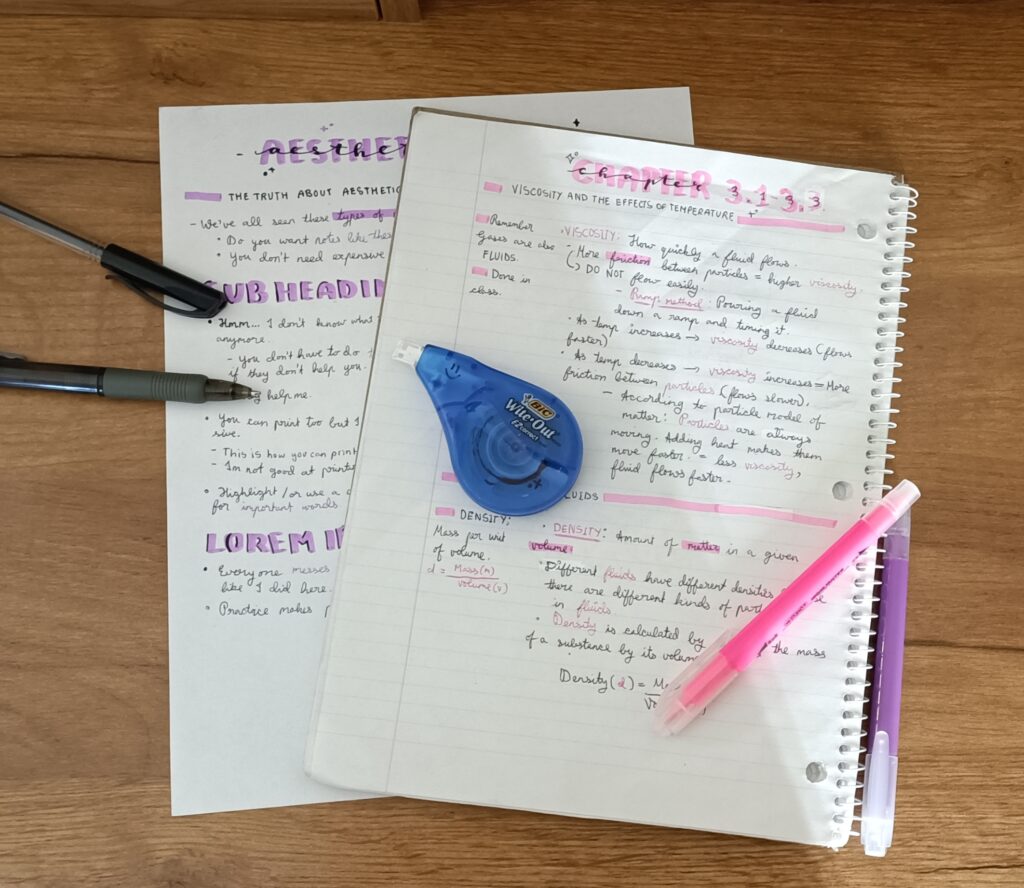 AESTHET
aesthet
THE TRUTH ABOUT AESTHETIC
- We've all seen these types of
• Do you want notes like these
• You don't need expensive
SUB HEADIN
• Hmm... I don't know what
anymore.
- You don't have to do
if they don't help you.
help me.
• You can print too but I
sive.
- This is how you can print
- I'm not good at printing
• Highlight/or use a
for important words
LOREM I
• Everyone messes
like I did here.
• Practice makes
CHAPTER 3.1-3.3
chapter 3.1-3.3
VISCOSITY AND THE EFFECTS OF TEMPERATURE
Remember
Gases are also
FLUIDS.
Done in
class.
• VISCOSITY: How quickly a fluid flows.
- More friction between particles = higher viscosity.
↳ DO NOT flow easily.
- Ramp method: Pouring a fluid
down a ramp and timing it.
• As temp increases → viscosity decreases (flows
faster)
• As temp decreases → viscosity increases = More
friction between particles (flows slower).
- According to particle model of
matter: Particles are always
moving. Adding heat makes them
move faster. = less viscosity,
fluid flows faster.
BIC
Wite·Out
EZcorrect
FLUIDS
DENSITY:
Mass per unit
of volume.
d = Mass(m)
volume(v)
• DENSITY: Amount of matter in a given
volume
• Different fluids have different densities
there are different kinds of
in fluids
• Density is calculated by the mass
of a substance by its
Density(d) =